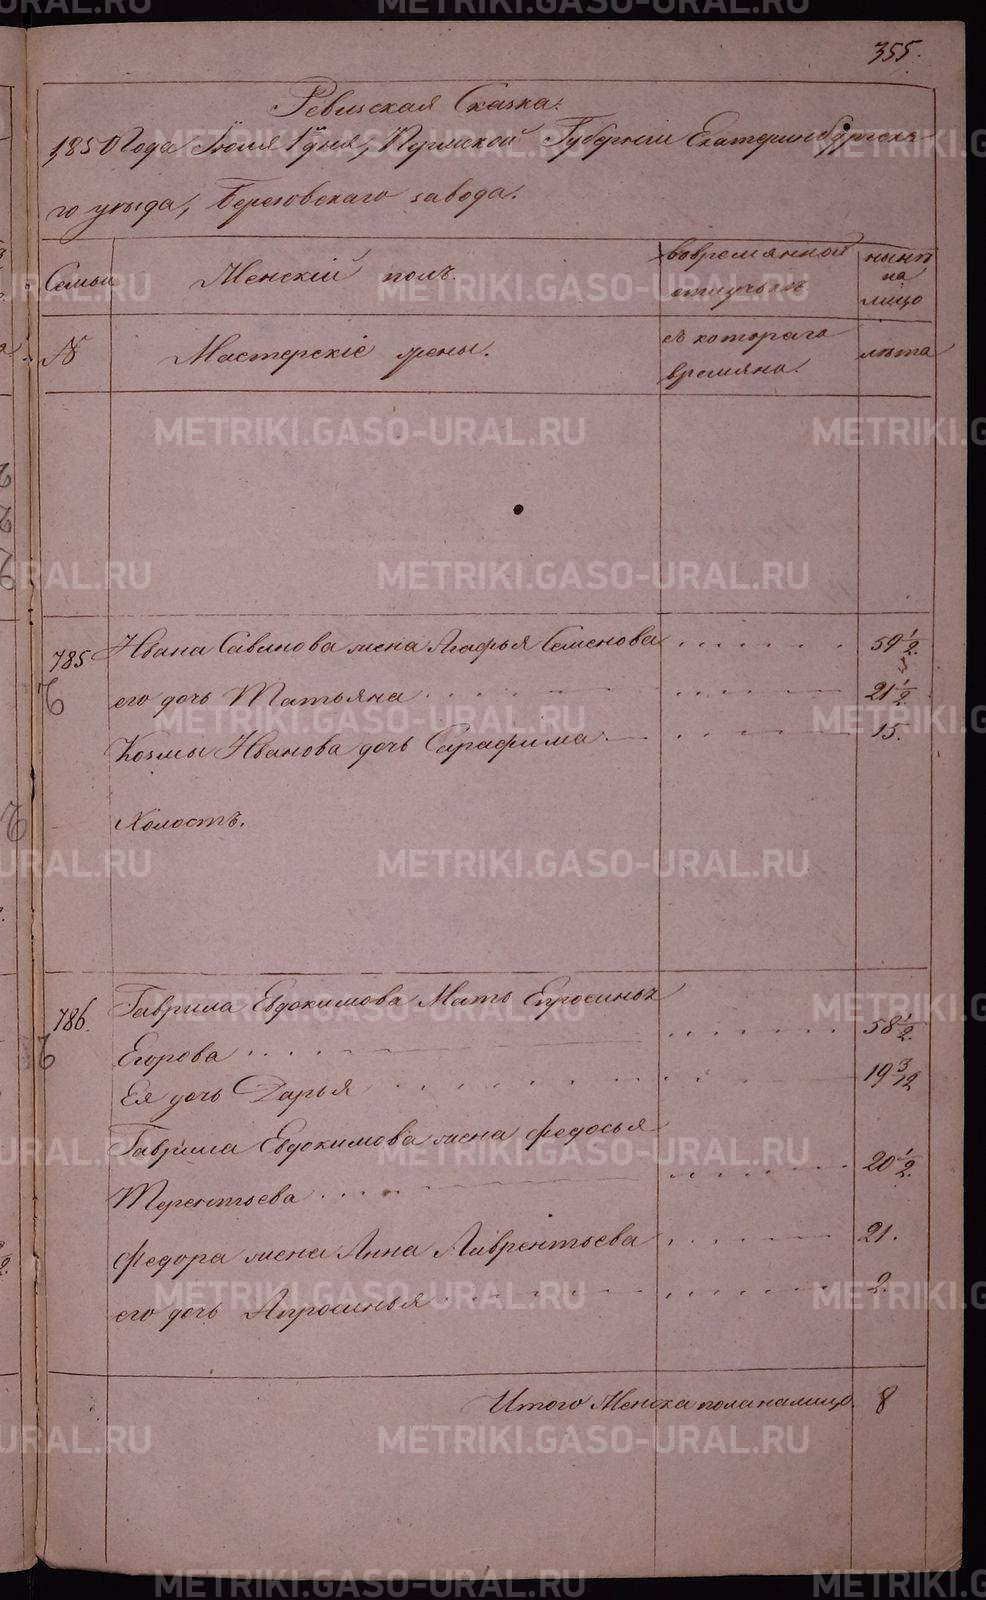 355.
Ревизская Сказка.
1850 Года Июля 1 дня, Пермской Губернiи Екатеринбургска
го уезда, Березовскаго завода.
Семьи
Женскiй полъ.
вовремянной
отлучьке
ныне
на
лицо
№
Мастерскiе жены.
съ котораго
времяни.
лета
785
Ивана Савинова жена Агафья Семенова
59 1/2.
его дочь Татьяна
21 1/2
Козмы Иванова дочь Сарафима
15.
Холостъ.
786.
Гаврила Евдокимова Мать
Егорова
58 1/2.
Ея дочь Дарья
19 3/12
Гаврила Евдокимова жена Федосья
Терентьева
20 1/2.
Федора жена Анна Лаврентьева
21.
его дочь Апросинья
2.
Итого Женска пола налицо. 8
METRIKI.GASO-URAL.RU